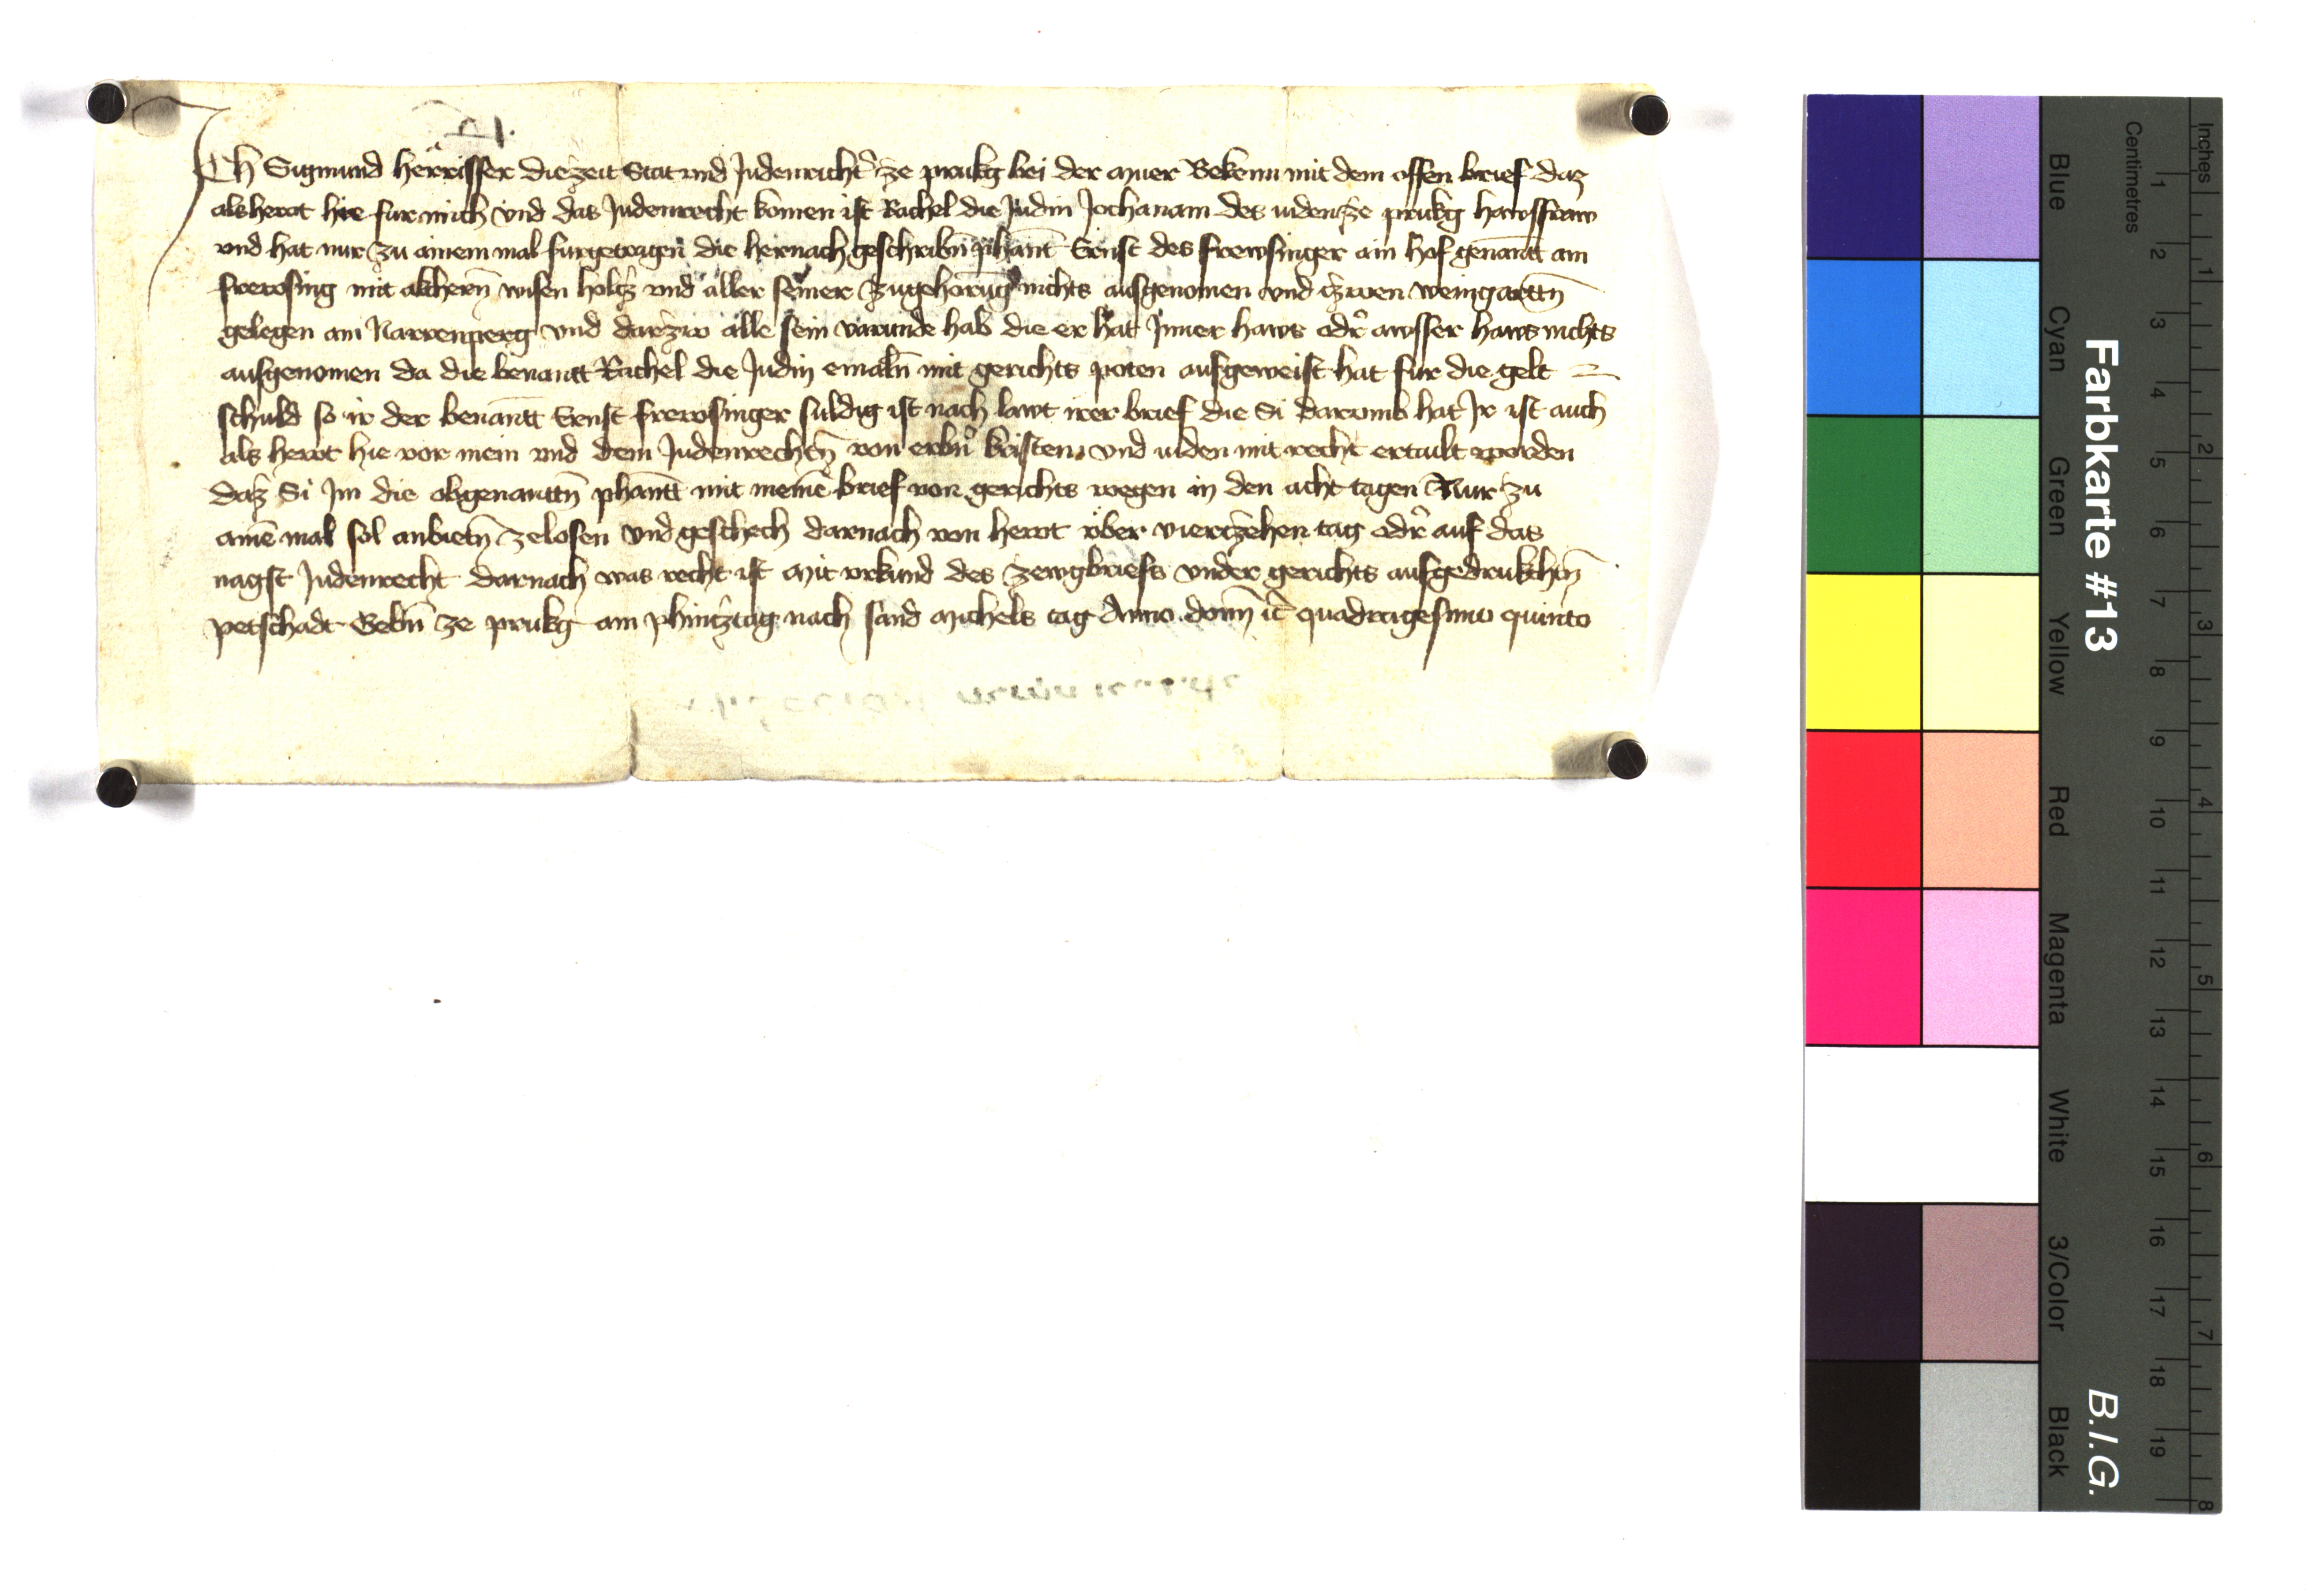 Ich Sigmund Herrisser die zeit Stat und Judenricht' ze prukg bei der Muer Bekenn mit dem offen brief daz
als hewt hie fur mich vnd das Judenrecht komen ist Rachel die Judin Jochanam des iuden ze prukg hawsfraw
vnd hat nur zu ainem mal furgetragen die hernach geschribn̄ phant Ernst des frewsinger ain hof genantt am
frewsing mit akchern̄ wisen holtz vnd aller seiner zugehorūg nichts ausgenomen vnd czwen weingarttn̄
gelegen am Narrenperg vnd darzw alle sein varunde hab die er hat Inner haws od' awsser haws nichts
ausgenomen da die benantt Rachel die Judin emaln̄ mit gerichts poten ausgeweist hat fur die gelt =
schuld so ir der benantt Ernst frewsinger suldig ist nach lawt irer brief die Si darumb hat Ir ist auch
als hewt hie vor mein vnd dem Judenrechtn̄ von erbn̄ kristen vnd iuden mit recht ertailt worden
daz Si Im die obgenanttn̄ phantt mit meinē brief von gerichts wegen in den acht tagen Nur zu
ainē mal sol anbietn̄ ze losen vnd geschech darnach von hewt vber viertzehen tag od' auf das
nagst Judenrecht darnach was recht ist Mit vrkund des zewgbriefs vnder gerichts aufgedrukchtn̄
petschadt Gebn̄ ze prukg am phintztag nach sand Michels tag Anno domī etc quadragesimo quinto
Farbkarte #13
B.I.G.
Inches
Centimetres
1 2 3 4 5 6 7 8 9 10 11 12 13 14 15 16 17 18 19
1 2 3 4 5 6 7 8
Blue
Cyan
Green
Yellow
Red
Magenta
White
3/Color
Black